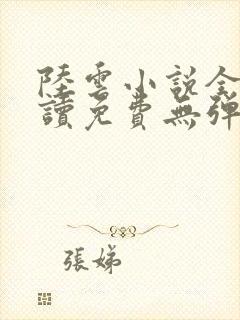 陸雲小說全
讀免費無彈
張娣